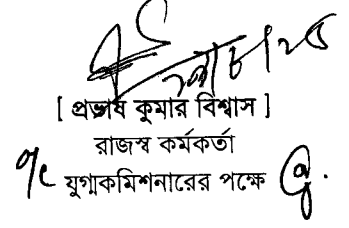 [ প্রভাষ কুমার বিশ্বাস ]
রাজস্ব কর্মকর্তা
যুগ্মকমিশনারের পক্ষে